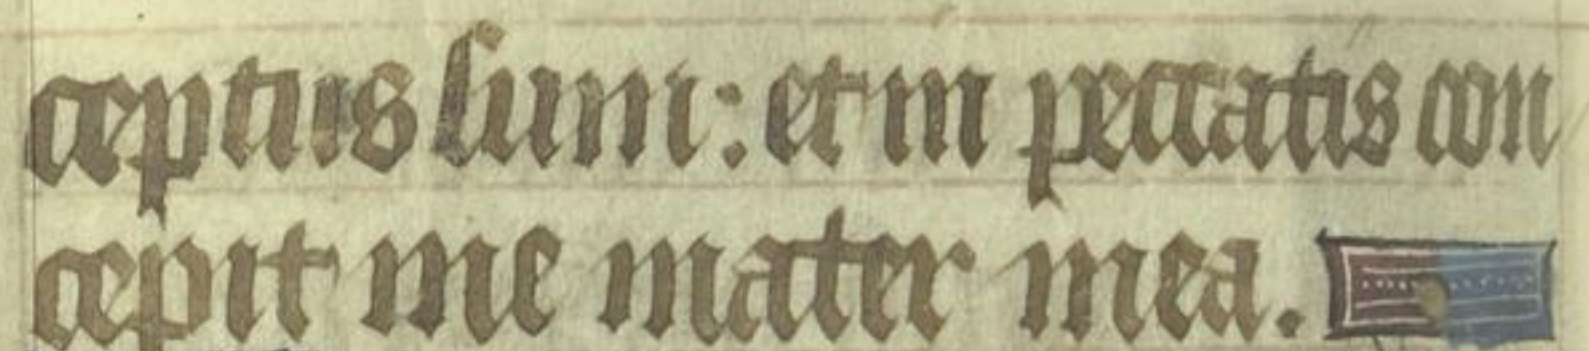 ceptus sum: et in peccatis con
cepit me mater mea.